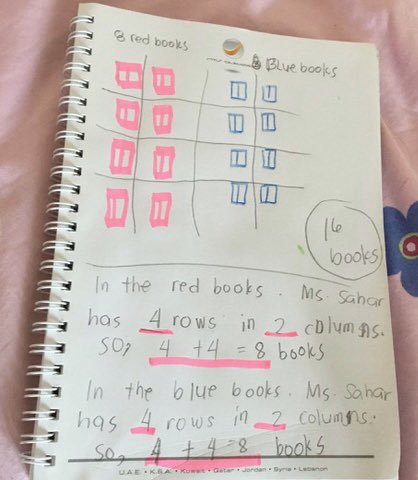 8 red books
8 Blue books
16
books
In the red books. Ms. Sahar
has 4 rows in 2 columns.
so, 4 + 4 = 8 books
In the blue books. Ms. Sahar
has 4 rows in 2 columns.
so, 4 + 4 = 8 books
U.A.E. • K.S.A. • Kuwait • Qatar • Jordan • Syria • Lebanon